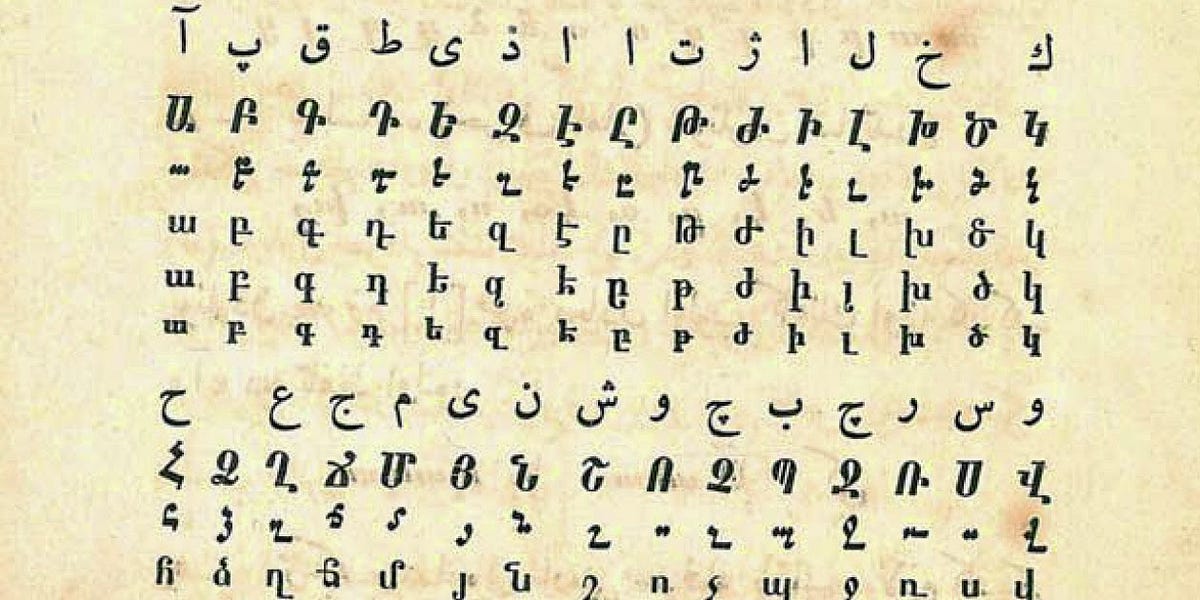 آ پ ق ط ی ذ ا ا ت ژ ا ل خ ك
Ա Բ Գ Դ Ե Զ Է Ը Թ Ժ Ի Լ Խ Ծ Կ
ա բ գ դ ե զ է ը թ ժ ի լ խ ծ կ
ա բ գ դ ե զ է ը թ ժ ի լ խ ծ կ
ա բ գ դ ե զ է ը թ ժ ի լ խ ծ կ
ա բ գ դ ե զ է ը թ ժ ի լ խ ծ կ
ح ع ج م ی ن ش و چ ب چ ر س و
Հ Ձ Ղ Ճ Մ Յ Ն Շ Ո Չ Պ Ջ Ռ Ս Վ
հ ձ ղ ճ մ յ ն շ ո չ պ ջ ռ ս վ
հ ձ ղ ճ մ յ ն շ ո չ պ ջ ռ ս վ